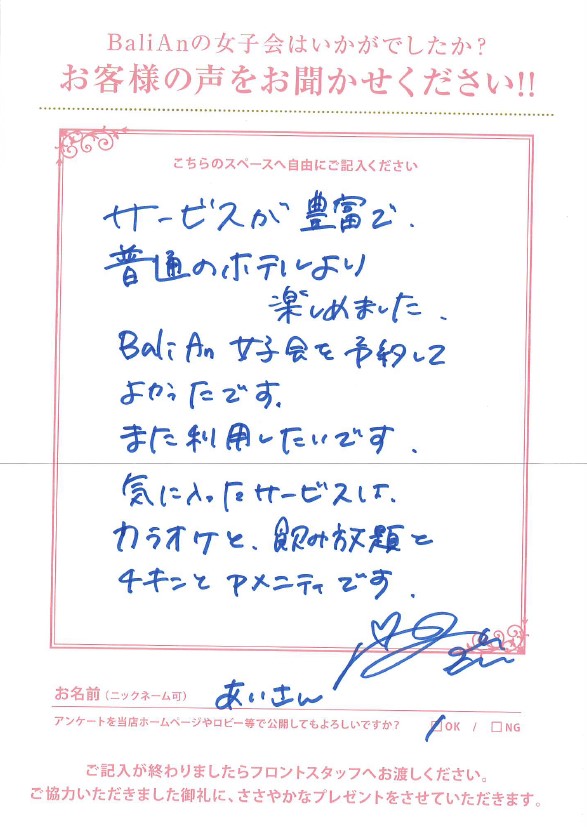 BaliAnの女子会はいかがでしたか?
お客様の声をお聞かせください!!
こちらのスペースへ自由にご記入ください
サービスが豊富で、
普通のホテルより
楽しめました。
BaliAn 女子会を予約して
よかったです。
また利用したいです。
気に入ったサービスは、
カラオケと、飲み放題と
チキンとアメニティです。
お名前(ニックネーム可) あいさん
アンケートを当店ホームページやロビー等で公開してもよろしいですか? □OK / □NG
ご記入が終わりましたらフロントスタッフへお渡しください。
ご協力いただきました御礼に、ささやかなプレゼントをさせていただきます。